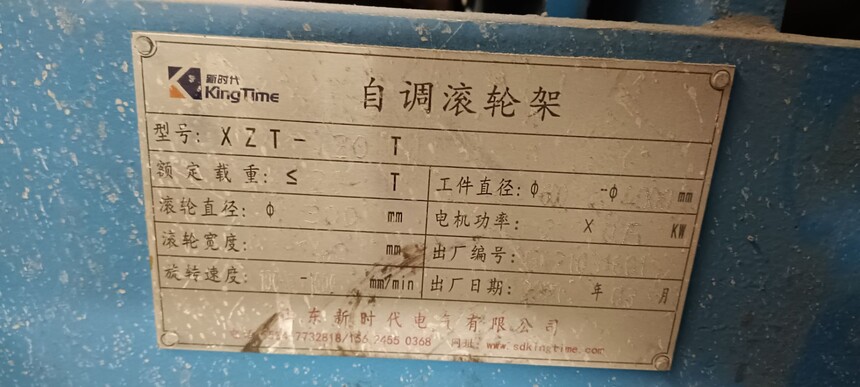 新时代
KingTime
自调滚轮架
型号: XZT- 30 T
额定载重: ≤ T
工件直径: Φ -Φ mm
滚轮直径: Φ mm
电机功率: X KW
滚轮宽度: mm
出厂编号:
旋转速度: - mm/min
出厂日期: 年 月
山东新时代电气有限公司
7732818/156 2455 0368 网址: www.sdkingtime.com